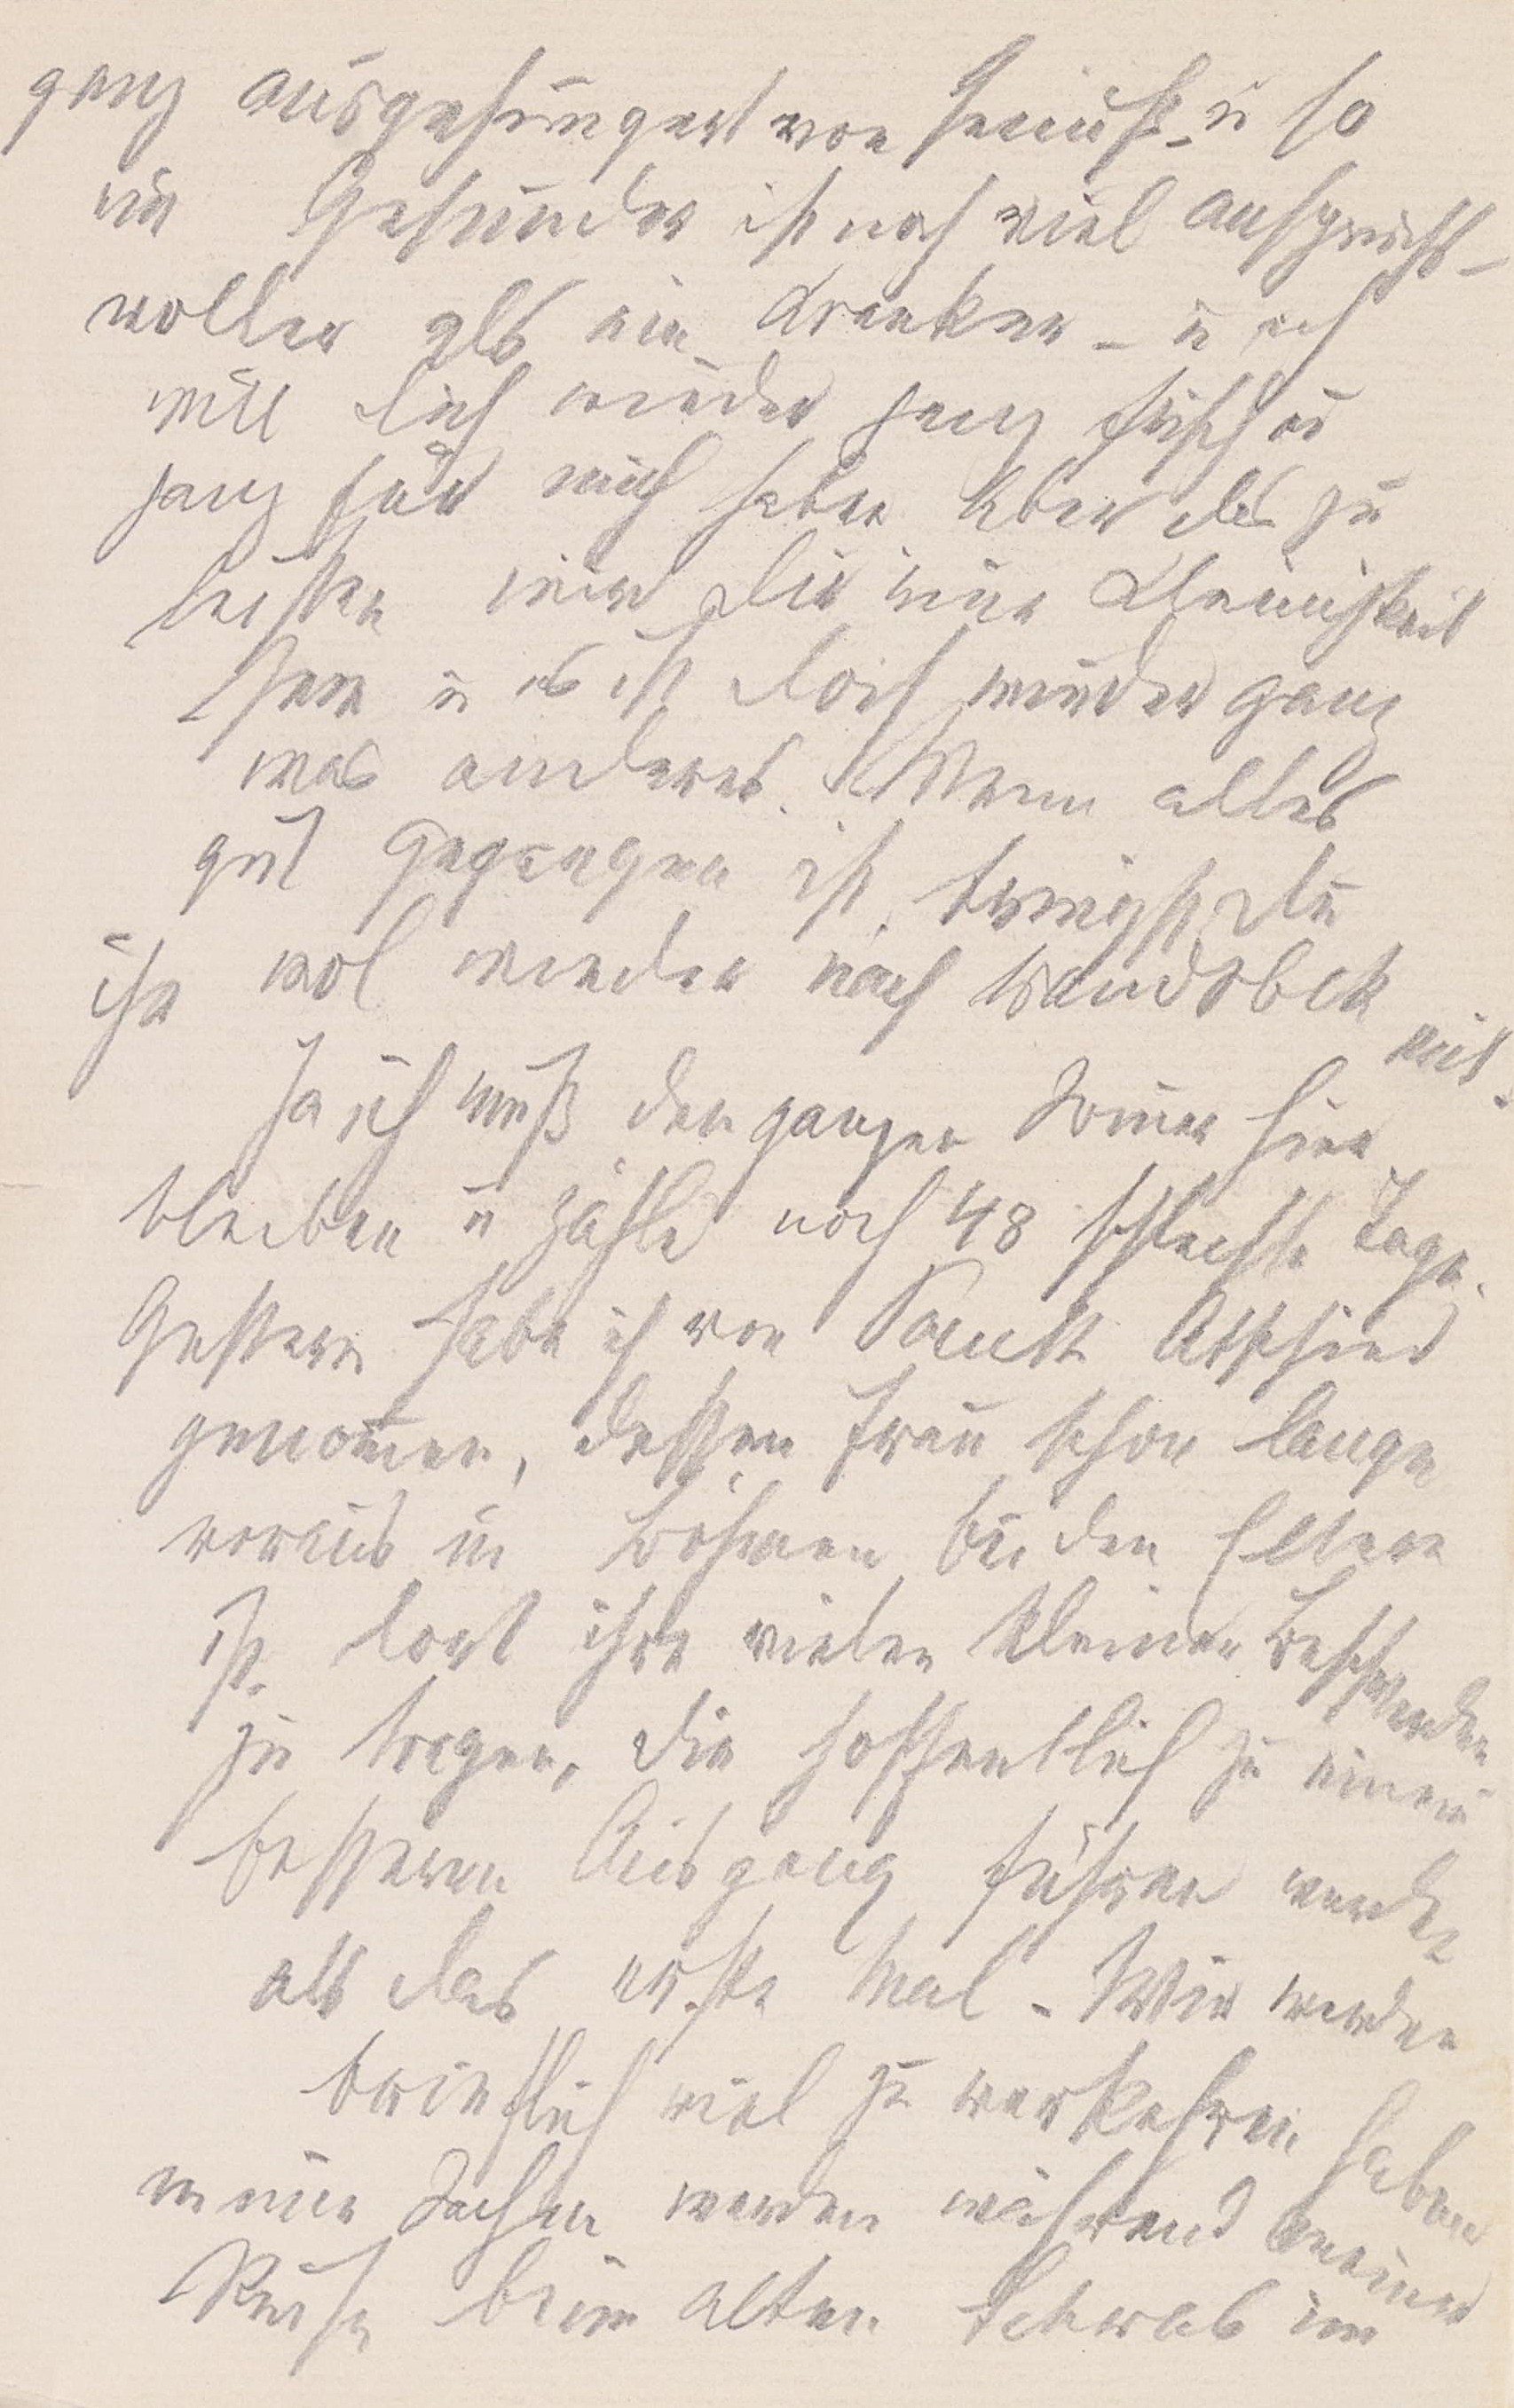 ganz ausgehungert von Genuß – u so
ein Gesunder ist noch viel anspruchs-
voller als ein Kranker – u ich
will Dich wieder ganz frisch u
ganz für mich haben Aber das zu
leisten wird Dir eine Kleinigkeit
sein u es ist doch wieder ganz
was anderes. Wenn alles
gut gegangen ist, bringst Du
ihn wol wieder nach Wandsbek
mit.
Ja ich muß den ganzen Somer hier
bleiben u zähle noch 48 schlechte Tage.
Gestern habe ich von Paneth Abschied
genomen, dessen Frau schon lange
voraus in Böhmen bei den Eltern
ist. dort ihre vielen kleinen Beschwerden
zu tragen, die hoffentlich zu einem
besseren Ausgang führen werden
als das erste Mal. – Wir werden
brieflich viel zu verkehren haben
meine Sachen werden während meiner
Reise beim alten Schwab im